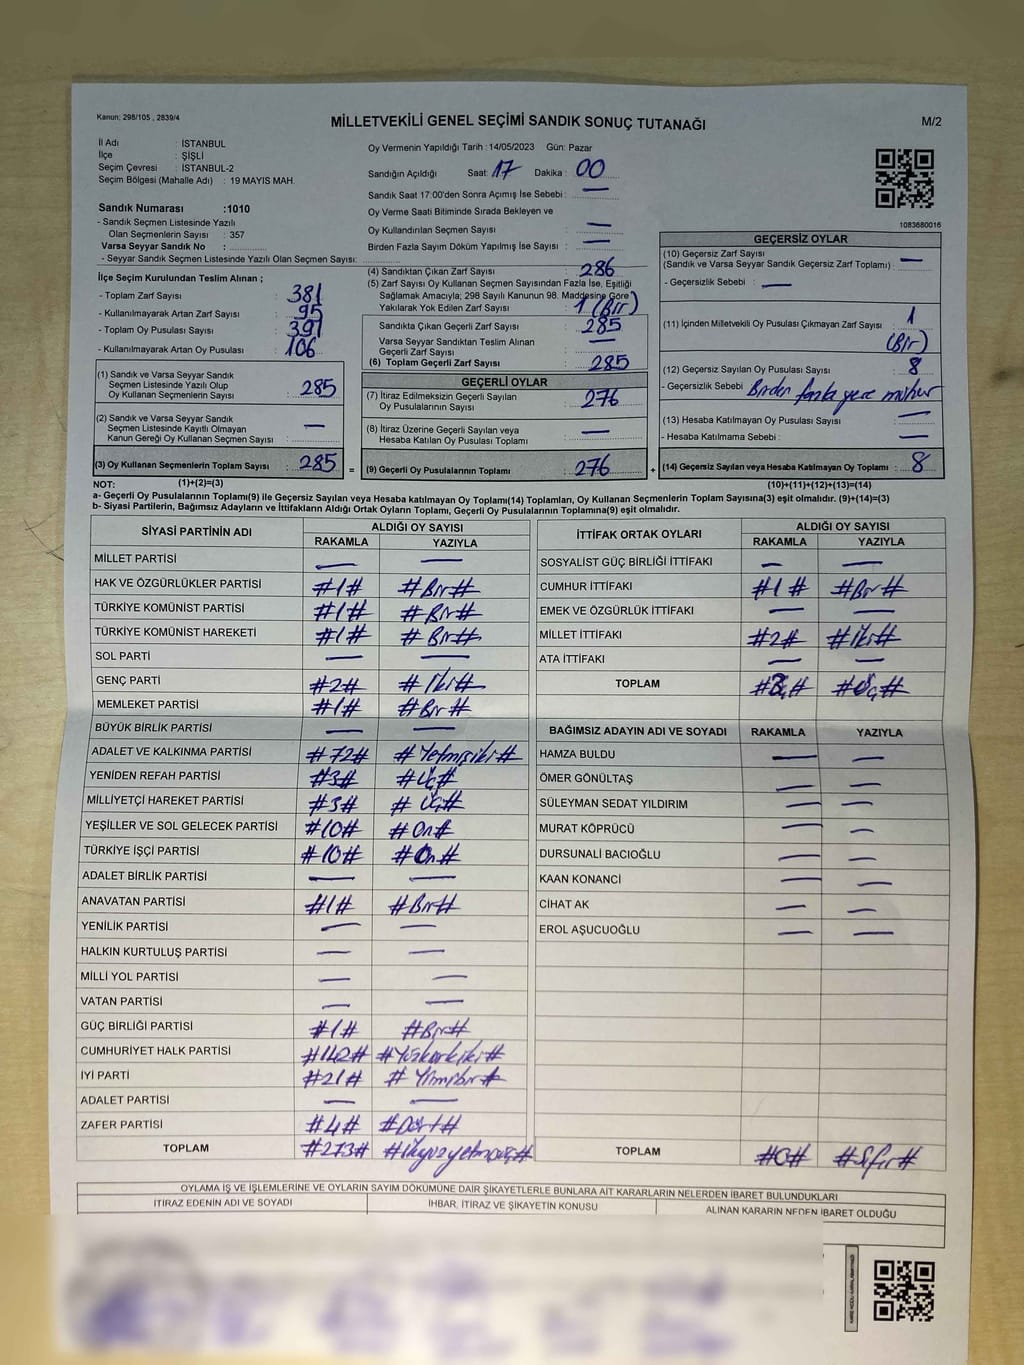 Kanun: 298/105 , 2839/4
MİLLETVEKİLİ GENEL SEÇİMİ SANDIK SONUÇ TUTANAĞI
M/2
İl Adı : İSTANBUL
İlçe : ŞİŞLİ
Seçim Çevresi : İSTANBUL-2
Seçim Bölgesi (Mahalle Adı) : 19 MAYIS MAH.
Oy Vermenin Yapıldığı Tarih : 14/05/2023 Gün: Pazar
Sandığın Açıldığı Saat: 17 Dakika : 00
Sandık Saat 17:00'den Sonra Açımış İse Sebebi : —
Oy Verme Saati Bitiminde Sırada Bekleyen ve
Oy Kullandırılan Seçmen Sayısı : —
Birden Fazla Sayım Döküm Yapılmış İse Sayısı : —
1083680016
Sandık Numarası :1010
- Sandık Seçmen Listesinde Yazılı
Olan Seçmenlerin Sayısı : 357
Varsa Seyyar Sandık No :
- Seyyar Sandık Seçmen Listesinde Yazılı Olan Seçmen Sayısı:
İlçe Seçim Kurulundan Teslim Alınan ;
- Toplam Zarf Sayısı : 381
- Kullanılmayarak Artan Zarf Sayısı : 95
- Toplam Oy Pusulası Sayısı : 391
- Kullanılmayarak Artan Oy Pusulası : 106
(1) Sandık ve Varsa Seyyar Sandık
Seçmen Listesinde Yazılı Olup
Oy Kullanan Seçmenlerin Sayısı : 285
(2) Sandık ve Varsa Seyyar Sandık
Seçmen Listesinde Kayıtlı Olmayan
Kanun Gereği Oy Kullanan Seçmen Sayısı : —
(3) Oy Kullanan Seçmenlerin Toplam Sayısı : 285 =
(1)+(2)=(3)
(4) Sandıktan Çıkan Zarf Sayısı : 286
(5) Zarf Sayısı Oy Kullanan Seçmen Sayısından Fazla İse, Eşitliği
Sağlamak Amacıyla; 298 Sayılı Kanunun 98. Maddesine Göre
Yakılarak Yok Edilen Zarf Sayısı : 1 (Bir)
Sandıkta Çıkan Geçerli Zarf Sayısı : 285
Varsa Seyyar Sandıktan Teslim Alınan
Geçerli Zarf Sayısı : —
(6) Toplam Geçerli Zarf Sayısı : 285
GEÇERLİ OYLAR
(7) İtiraz Edilmeksizin Geçerli Sayılan
Oy Pusulalarının Sayısı : 276
(8) İtiraz Üzerine Geçerli Sayılan veya
Hesaba Katılan Oy Pusulası Toplamı : —
(9) Geçerli Oy Pusulalarının Toplamı : 276 +
GEÇERSİZ OYLAR
(10) Geçersiz Zarf Sayısı
(Sandık ve Varsa Seyyar Sandık Geçersiz Zarf Toplamı) : —
- Geçersizlik Sebebi : —
(11) İçinden Milletvekili Oy Pusulası Çıkmayan Zarf Sayısı : 1
(Bir)
(12) Geçersiz Sayılan Oy Pusulası Sayısı : 8
- Geçersizlik Sebebi : Birden fazla yere mühür
(13) Hesaba Katılmayan Oy Pusulası Sayısı : —
- Hesaba Katılmama Sebebi : —
(14) Geçersiz Sayılan veya Hesaba Katılmayan Oy Toplamı : 8
(10)+(11)+(12)+(13)=(14)
NOT:
a- Geçerli Oy Pusulalarının Toplamı(9) ile Geçersiz Sayılan veya Hesaba katılmayan Oy Toplamı(14) Toplamları, Oy Kullanan Seçmenlerin Toplam Sayısına(3) eşit olmalıdır. (9)+(14)=(3)
b- Siyasi Partilerin, Bağımsız Adayların ve İttifakların Aldığı Ortak Oyların Toplamı, Geçerli Oy Pusulalarının Toplamına(9) eşit olmalıdır.
SİYASİ PARTİNİN ADI ALDIĞI OY SAYISI
RAKAMLA YAZIYLA
MİLLET PARTİSİ — —
HAK VE ÖZGÜRLÜKLER PARTİSİ #1# #Bir#
TÜRKİYE KOMÜNİST PARTİSİ #1# #Bir#
TÜRKİYE KOMÜNİST HAREKETİ #1# #Bir#
SOL PARTİ — —
GENÇ PARTİ #2# #İki#
MEMLEKET PARTİSİ #1# #Bir#
BÜYÜK BİRLİK PARTİSİ — —
ADALET VE KALKINMA PARTİSİ #72# #Yetmişiki#
YENİDEN REFAH PARTİSİ #3# #Üç#
MİLLİYETÇİ HAREKET PARTİSİ #3# #Üç#
YEŞİLLER VE SOL GELECEK PARTİSİ #10# #On#
TÜRKİYE İŞÇİ PARTİSİ #10# #On#
ADALET BİRLİK PARTİSİ — —
ANAVATAN PARTİSİ #1# #Bir#
YENİLİK PARTİSİ — —
HALKIN KURTULUŞ PARTİSİ — —
MİLLİ YOL PARTİSİ — —
VATAN PARTİSİ — —
GÜÇ BİRLİĞİ PARTİSİ #1# #Bir#
CUMHURİYET HALK PARTİSİ #142# #Yüzkırkiki#
İYİ PARTİ #21# #Yirmibir#
ADALET PARTİSİ — —
ZAFER PARTİSİ #4# #Dört#
TOPLAM #273# #İkiyüzyetmişüç#
İTTİFAK ORTAK OYLARI ALDIĞI OY SAYISI
RAKAMLA YAZIYLA
SOSYALİST GÜÇ BİRLİĞİ İTTİFAKI — —
CUMHUR İTTİFAKI #1# #Bir#
EMEK VE ÖZGÜRLÜK İTTİFAKI — —
MİLLET İTTİFAKI #2# #İki#
ATA İTTİFAKI — —
TOPLAM #3# #Üç#
BAĞIMSIZ ADAYIN ADI VE SOYADI RAKAMLA YAZIYLA
HAMZA BULDU — —
ÖMER GÖNÜLTAŞ — —
SÜLEYMAN SEDAT YILDIRIM — —
MURAT KÖPRÜCÜ — —
DURSUNALİ BACIOĞLU — —
KAAN KONANCİ — —
CİHAT AK — —
EROL AŞUCUOĞLU — —
TOPLAM #0# #Sıfır#
OYLAMA İŞ VE İŞLEMLERİNE VE OYLARIN SAYIM DÖKÜMÜNE DAİR ŞİKAYETLERLE BUNLARA AİT KARARLARIN NELERDEN İBARET BULUNDUKLARI
İTİRAZ EDENİN ADI VE SOYADI İHBAR, İTİRAZ VE ŞİKAYETİN KONUSU ALINAN KARARIN NEDEN İBARET OLDUĞU